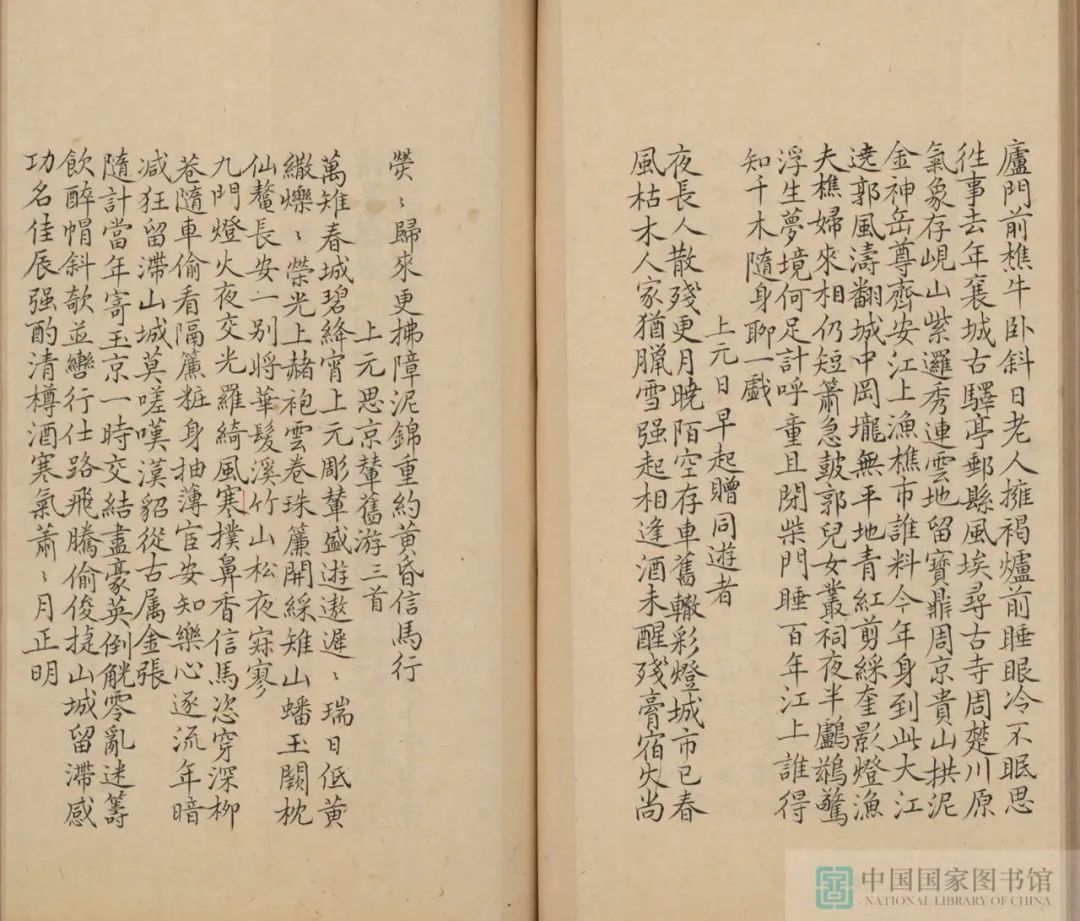 廬門前樵牛卧斜日老人擁褐爐前睡眼冷不眠思
徃事去年襄城古驛亭郵縣風埃尋古寺周楚川原
氣象存峴山紫邏秀連雲地留寶鼎周京貴山拱泥
金神岳尊齊安江上漁樵市誰料今年身到此大江
遶郭風濤翻城中岡壠無平地青紅剪綵奎影燈漁
夫樵婦來相仍短簫急鼓郭兒女叢祠夜半鸕鷀驚
浮生夢境何足計呼重且閉柴門睡百年江上誰得
知千木隨身聊一戲
上元日早起贈同遊者
夜長人散殘更月曉陌空存車舊轍彩燈城市已春
風枯木人家猶臘雪强起相逢酒未醒殘膏宿火尚
熒〻歸來更拂障泥錦重約黃昏信馬行
上元思京輦舊游三首
萬雉春城碧絳宵上元彫輦盛遊遨遲〻瑞日低黃
繖爍〻榮光上赭袍雲卷珠簾開綵雉山蟠玉闕枕
仙鼇長安一别將華髮溪竹山松夜寐寥
九門燈火夜交光羅綺風寒撲鼻香信馬恣穿深柳
巷隨車偷看隔簾粧身抽薄宦安知樂心逐流年暗
減狂留滯山城莫嗟嘆漢貂從古属金張
隨計當年寄玉京一時交結盡豪英倒觥零亂迷籌
飲醉帽斜欹並轡行仕路飛騰偷俊捷山城留滯感
功名佳辰强酌清樽酒寒氣蕭〻月正明
中国国家图书馆
NATIONAL LIBRARY OF CHINA